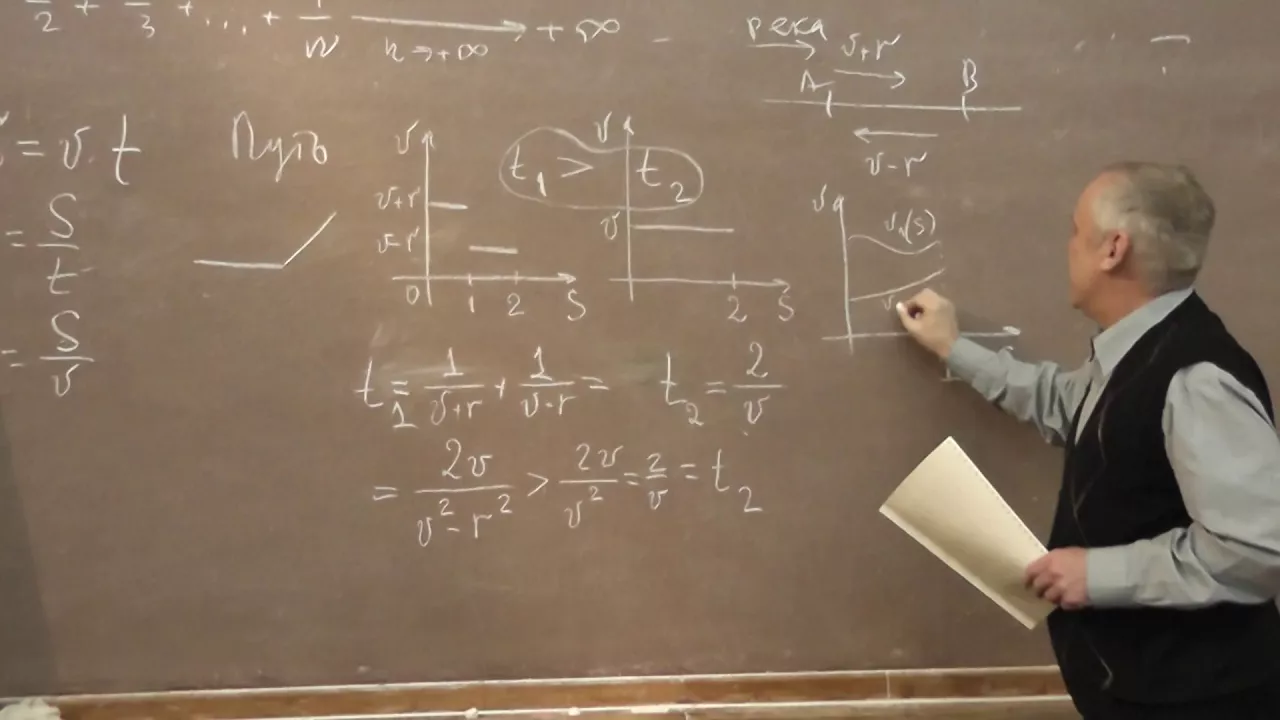 2 + 3 + ... + 1/n → +∞
n → +∞
река
v+r
A B
v-r
= v · t
= S/t
= S/v
Путь
v
v+r
v-r
0 1 2 S
t₁ > t₂
v
v
2 S
v
v₁(S)
t₁ = 1/(v+r) + 1/(v-r) =
= 2v/(v²-r²) > 2v/v² = 2/v = t₂
t₂ = 2/v